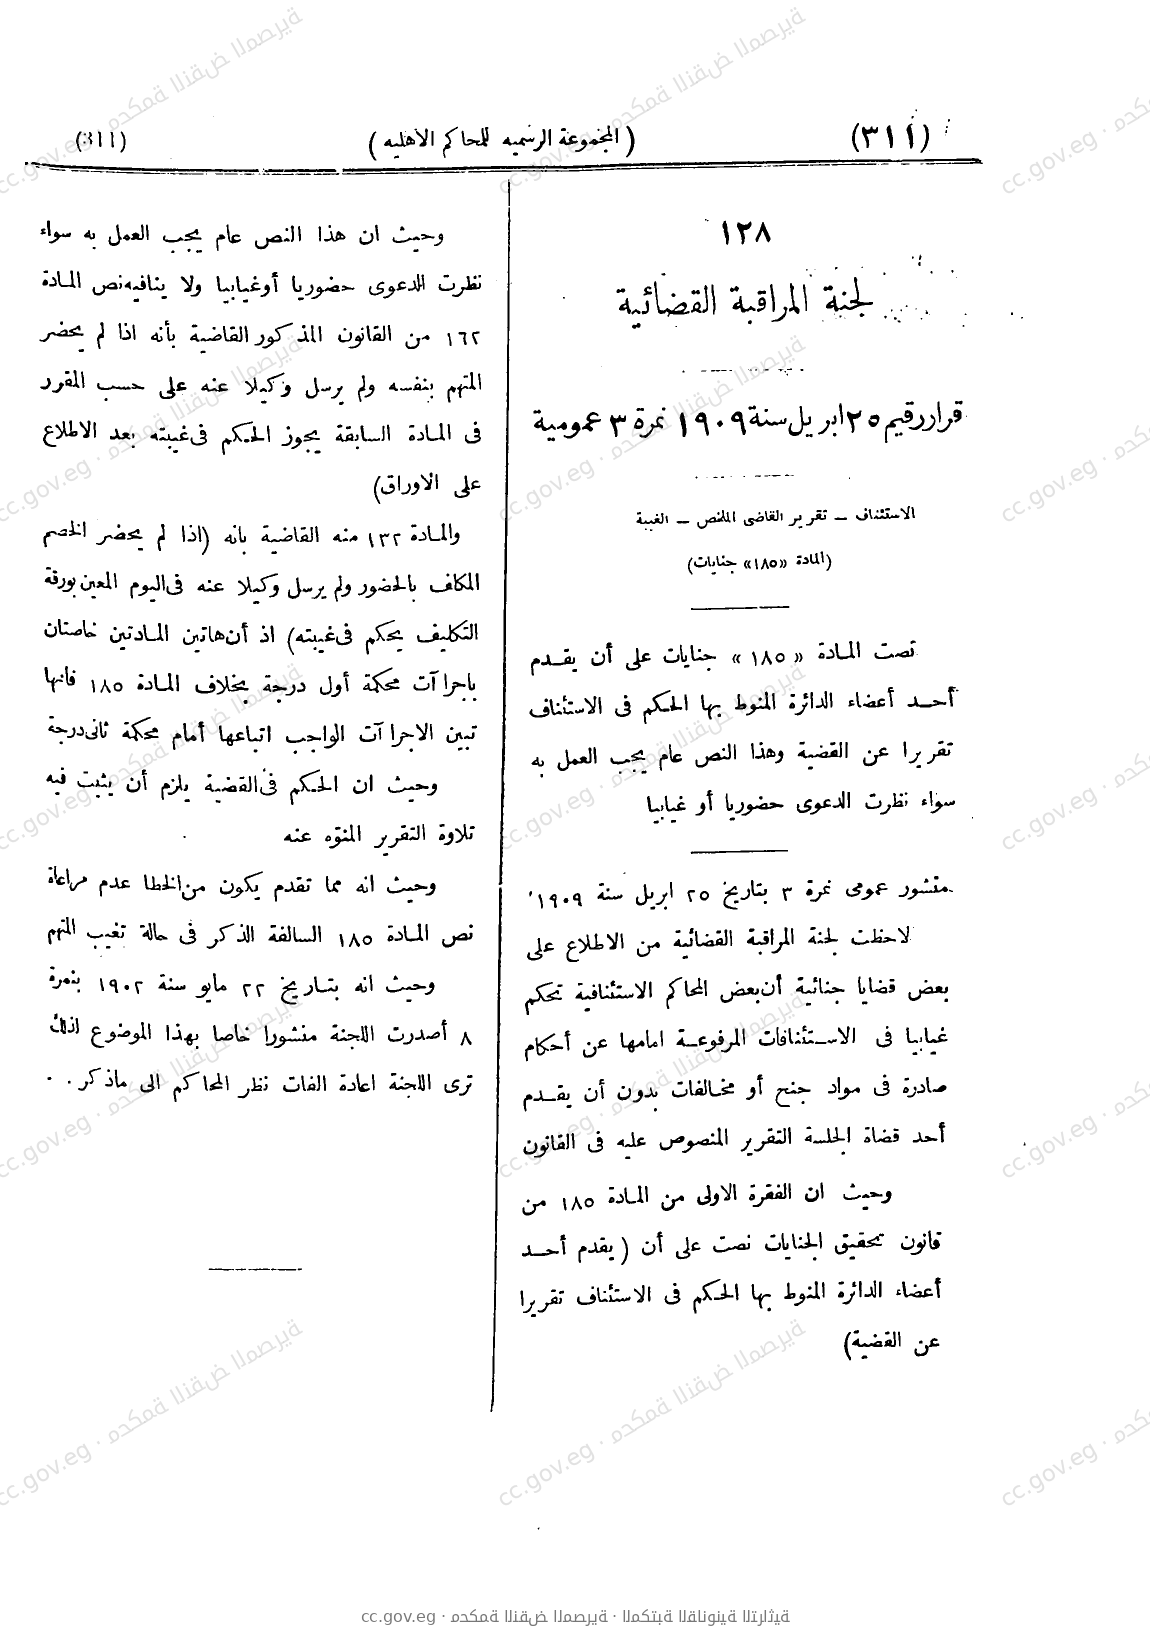 (٣١١)
(المجموعة الرسميه للمحاكم الاهليه)
(311)
١٢٨
لجنة المراقبة القضائية
قرار رقيم ٢٥ ابريل سنة ١٩٠٩ نمرة ٣ عمومية
الاستئناف — تقرير القاضى الملخص — الغيبة
(المادة «١٨٥» جنايات)
نصت المادة «١٨٥» جنايات على أن يقدم
أحد أعضاء الدائرة المنوط بها الحكم فى الاستئناف
تقريرا عن القضية وهذا النص عام يجب العمل به
سواء نظرت الدعوى حضوريا أو غيابيا
منشور عمومى نمرة ٣ بتاريخ ٢٥ ابريل سنة ١٩٠٩
لاحظت لجنة المراقبة القضائية من الاطلاع على
بعض قضايا جنائية أن بعض المحاكم الاستئنافية تحكم
غيابيا فى الاستئنافات المرفوعة امامها عن أحكام
صادرة فى مواد جنح أو مخالفات بدون أن يقدم
أحد قضاة الجلسة التقرير المنصوص عليه فى القانون
وحيث ان الفقرة الاولى من المادة ١٨٥ من
قانون تحقيق الجنايات نصت على أن (يقدم أحد
أعضاء الدائرة المنوط بها الحكم فى الاستئناف تقريرا
عن القضية)
وحيث ان هذا النص عام يجب العمل به سواء
نظرت الدعوى حضوريا أو غيابيا ولا ينافيه نص المادة
١٦٢ من القانون المذكور القاضية بأنه اذا لم يحضر
المتهم بنفسه ولم يرسل وكيلا عنه على حسب المقرر
فى المادة السابقة يجوز الحكم فى غيبته بعد الاطلاع
على الاوراق)
والمادة ١٣٢ منه القاضية بانه (اذا لم يحضر الخصم
المكلف بالحضور ولم يرسل وكيلا عنه فى اليوم المعين بورقة
التكليف يحكم فى غيبته) اذ أن هاتين المادتين خاصتان
باجراآت محكمة أول درجة بخلاف المادة ١٨٥ فانها
تبين الاجراآت الواجب اتباعها أمام محكمة ثانى درجة
وحيث ان الحكم فى القضية يلزم أن يثبت فيه
تلاوة التقرير المنوّه عنه
وحيث انه مما تقدم يكون من الخطا عدم مراعاة
نص المادة ١٨٥ السالفة الذكر فى حالة تغيب المتهم
وحيث انه بتاريخ ٢٢ مايو سنة ١٩٠٢ بنمرة
٨ أصدرت اللجنة منشورا خاصا بهذا الموضوع لذلك
ترى اللجنة اعادة الفات نظر المحاكم الى ماذكر . .
cc.gov.eg · محكمة النقض المصرية · المكتبة القانونية التراثية